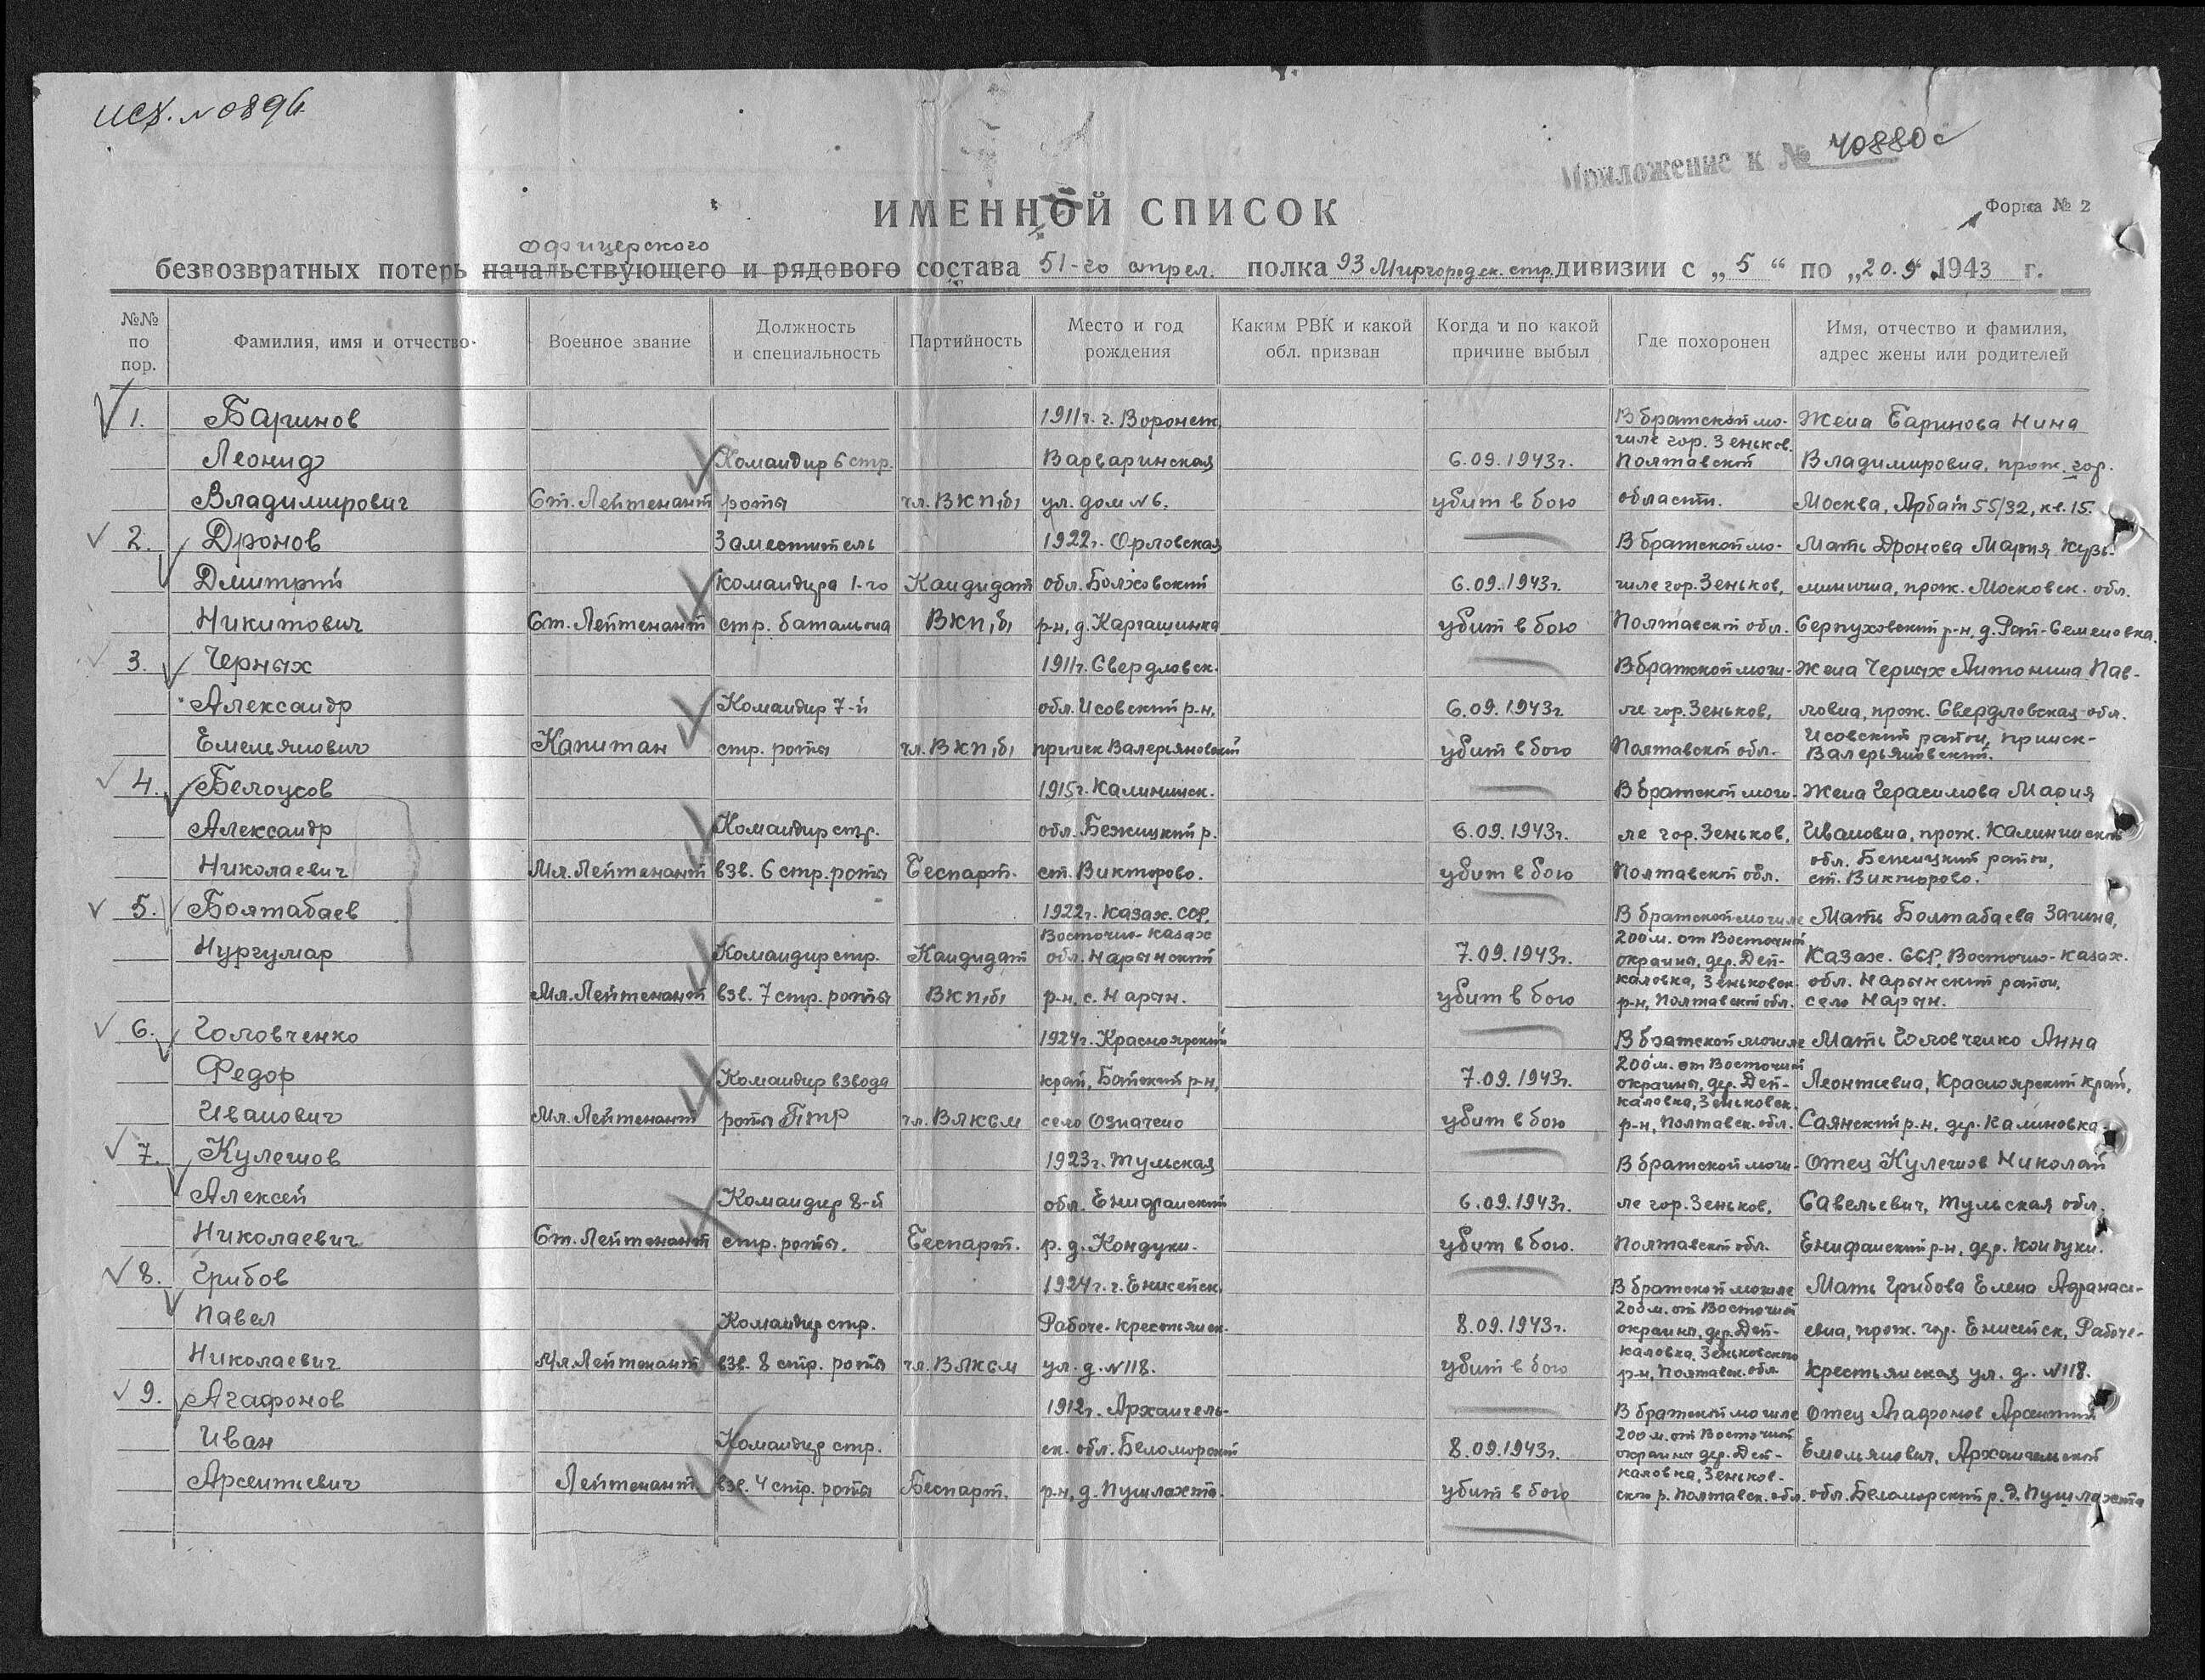 исх. № 0896
Приложение к № 40880с
ИМЕННОЙ СПИСОК
Форма № 2
офицерского
безвозвратных потерь начальствующего и рядового состава 51-го стрел. полка 93 Миргородск. стр. дивизии с „5“ по „20.9 1943 г.
№№ по пор.
Фамилия, имя и отчество
Военное звание
Должность и специальность
Партийность
Место и год рождения
Каким РВК и какой обл. призван
Когда и по какой причине выбыл
Где похоронен
Имя, отчество и фамилия, адрес жены или родителей
1. Баринов 1911г. г. Воронеж, В братской мо- Жена Баринова Нина
гиле гор. Зеньков,
Леонид Командир 6 стр. Варваринская 6.09.1943г. Полтавской Владимировна, прож. гор.
Владимирович Ст. Лейтенант роты чл. ВКП/б/ ул. дом №6. убит в бою области. Москва, Арбат 55/32, кв. 15.
2. Дронов Заместитель 1922г. Орловская В братской мо- Мать Дронова Мария Кузь-
Дмитрий командира 1-го Кандидат обл. Болховский 6.09.1943г. гиле гор. Зеньков, минична, прож. Московск. обл.
Никитович Ст. Лейтенант стр. батальона ВКП/б/ р-н, д. Каргашинка убит в бою Полтавской обл. Серпуховский р-н, д. Рай-Семеновка.
3. Черных 1911г. Свердловск. В братской моги- Жена Черных Антонина Пав-
Александр Командир 7-й обл. Исовский р-н, 6.09.1943г. ле гор. Зеньков, ловна, прож. Свердловская обл.
Исовский район, прииск-
Емельянович Капитан стр. роты чл. ВКП/б/ прииск Валерьяновский убит в бою Полтавской обл. Валерьяновский.
4. Белоусов 1915г. Калининск. В братской моги- Жена Герасимова Мария
Александр Командир стр. обл. Бежицкий р. 6.09.1943г. ле гор. Зеньков, Ивановна, прож. Калининской
обл. Бежицкий район,
Николаевич Мл. Лейтенант взв. 6 стр. роты Беспарт. ст. Викторово. убит в бою Полтавской обл. ст. Викторово.
5. Болтабаев 1922г. Казах. ССР, В братской могиле Мать Болтабаева Загина,
Восточно-Казах 200м. от Восточной
Нургумар Командир стр. Кандидат обл. Нарынский 7.09.1943г. окраины, дер. Дей- Казах. ССР, Восточно-Казах.
каловка, Зеньковск. обл. Нарынский район,
Мл. Лейтенант взв. 7 стр. роты ВКП/б/ р-н, с. Нарын. убит в бою р-н, Полтавской обл. село Нарын.
6. Головченко 1924г. Красноярский В братской могиле Мать Головченко Анна
200м. от Восточной
Федор Командир взвода край, Бейский р-н, 7.09.1943г. окраины, дер. Дей- Леонтьевна, Красноярский край,
каловка, Зеньковск.
Иванович Мл. Лейтенант роты ПТР чл. ВЛКСМ село Означено убит в бою р-н, Полтавск. обл. Саянский р-н, дер. Калиновка.
7. Кулешов 1923г. Тульская В братской моги- Отец Кулешов Николай
Алексей Командир 8-й обл. Енифанский 6.09.1943г. ле гор. Зеньков, Савельевич, Тульская обл.
Николаевич Ст. Лейтенант стр. роты. Беспарт. р. д. Кондуки. убит в бою. Полтавской обл. Енифанский р-н, дер. Кондуки.
8. Грибов 1924г. г. Енисейск, В братской могиле Мать Грибова Елена Афанась-
200м. от Восточной
Павел Командир стр. Рабоче-крестьянск. 8.09.1943г. окраины, дер. Дей- евна, прож. гор. Енисейск, Рабоче-
каловка, Зеньковского
Николаевич Мл. Лейтенант взв. 8 стр. роты чл. ВЛКСМ ул. д. №118. убит в бою р-н, Полтавск. обл. крестьянская ул. д. №118.
9. Агафонов 1912г. Архангель- В братской могиле Отец Агафонов Арсентий
200м. от Восточной
Иван Командир стр. ск. обл. Беломорский 8.09.1943г. окраины дер. Дей- Емельянович, Архангельской
каловка, Зеньков-
Арсентьевич Лейтенант взв. 4 стр. роты Беспарт. р-н, д. Пушлахта. убит в бою ского р. Полтавск. обл. обл. Беломорский р. д. Пушлахта